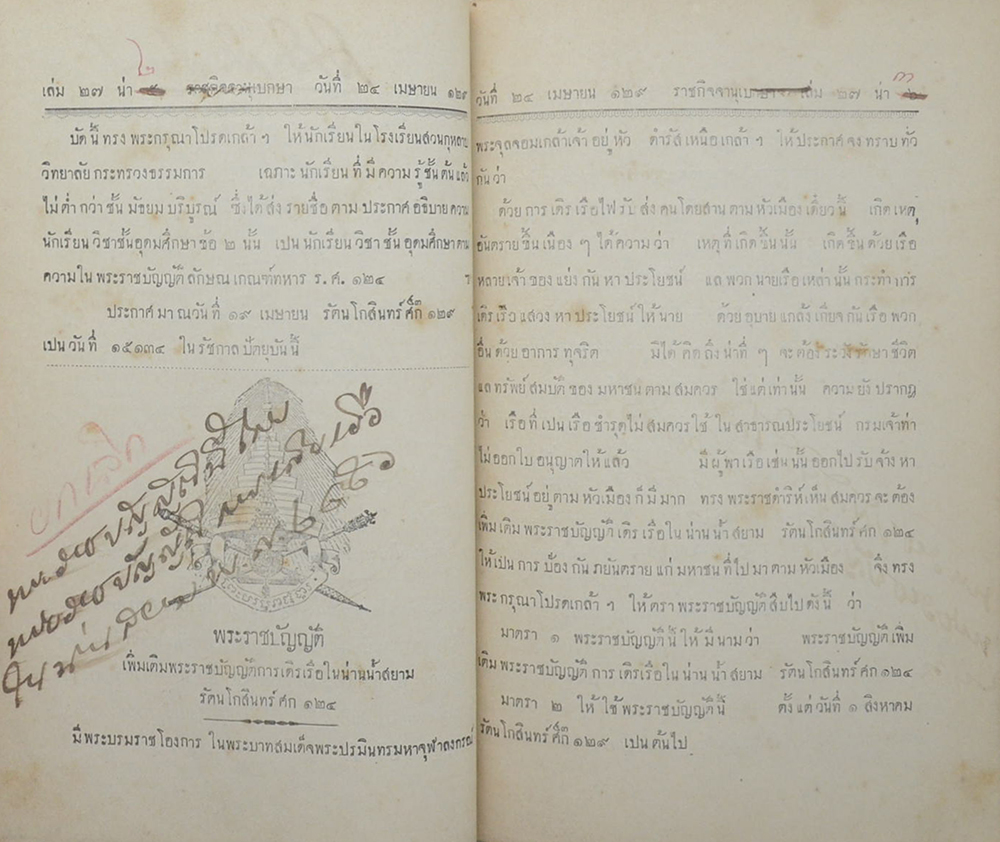 ๒
เล่ม ๒๗ น่า ราชกิจจานุเบกษา วันที่ ๒๔ เมษายน ๑๒๙
บัดนี้ทรงพระกรุณาโปรดเกล้าฯ ให้นักเรียนในโรงเรียนสวนกุหลาบ
วิทยาลัยกระทรวงธรรมการ เฉภาะนักเรียนที่มีความรู้ชั้นต้นแล้ว
ไม่ต่ำกว่าชั้นมัธยมบริบูรณ์ ซึ่งได้ส่งรายชื่อตามประกาศอธิบายความ
นักเรียนวิชาชั้นอุดมศึกษาข้อ ๒ นั้น เปนนักเรียนวิชาชั้นอุดมศึกษาตาม
ความในพระราชบัญญัติลักษณเกณฑ์ทหาร ร.ศ. ๑๒๔
ประกาศมาณวันที่ ๑๙ เมษายน รัตนโกสินทร์ศก๊ ๑๒๙
เปนวันที่ ๑๕๑๓๔ ในรัชกาลปัตยุบันนี้
ยกเลิก
พระราชบัญญัติ
เพิ่มเติมพระราชบัญญัติการเดิรเรือในน่านน้ำสยาม
รัตนโกสินทรศก ๑๒๔
มีพระบรมราชโองการ ในพระบาทสมเด็จพระปรมินทรมหาจุฬาลงกรณ์
๓
วันที่ ๒๔ เมษายน ๑๒๙ ราชกิจจานุเบกษา เล่ม ๒๗ น่า
พระจุลจอมเกล้าเจ้าอยู่หัว ดำรัสเหนือเกล้าฯ ให้ประกาศจงทราบทั่ว
กันว่า
ด้วยการเดิรเรือไฟรับส่งคนโดยสานตามหัวเมืองเดี๋ยวนี้ เกิดเหตุ
อันตรายขึ้นเนืองๆ ได้ความว่า เหตุที่เกิดขึ้นนั้น เกิดขึ้นด้วยเรือ
หลายเจ้าของแย่งกันหาประโยชน์ แลพวกนายเรือเหล่านั้นกระทำการ
เดิรเรือแสวงหาประโยชน์ให้นาย ด้วยอุบายแกล้งเกียจกันเรือพวก
อื่นด้วยอาการทุจริต มิได้คิดถึงน่าที่ๆ จะต้องระวังรักษาชีวิต
แลทรัพย์สมบัติของมหาชนตามสมควร ใช่แต่เท่านั้น ความยังปรากฏ
ว่า เรือที่เปนเรือชำรุดไม่สมควรใช้ในสาธารณประโยชน์ กรมเจ้าท่า
ไม่ออกใบอนุญาตให้แล้ว มีผู้พาเรือเช่นนั้นออกไปรับจ้างหา
ประโยชน์อยู่ตามหัวเมืองก็มีมาก ทรงพระราชดำริห์เห็นสมควรจะต้อง
เพิ่มเติมพระราชบัญญัติเดิรเรือในน่านน้ำสยาม รัตนโกสินทร์ศก ๑๒๔
ให้เปนการป้องกันภยันตรายแก่มหาชนที่ไปมาตามหัวเมือง จึงทรง
พระกรุณาโปรดเกล้าฯ ให้ตราพระราชบัญญัติสืบไปดังนี้ ว่า
มาตรา ๑ พระราชบัญญัตินี้ให้มีนามว่า พระราชบัญญัติเพิ่ม
เติมพระราชบัญญัติการเดิรเรือในน่านน้ำสยาม รัตนโกสินทร์ศก ๑๒๔
มาตรา ๒ ให้ใช้พระราชบัญญัตินี้ ตั้งแต่วันที่ ๑ สิงหาคม
รัตนโกสินทร์ศก๊ ๑๒๙ เปนต้นไป